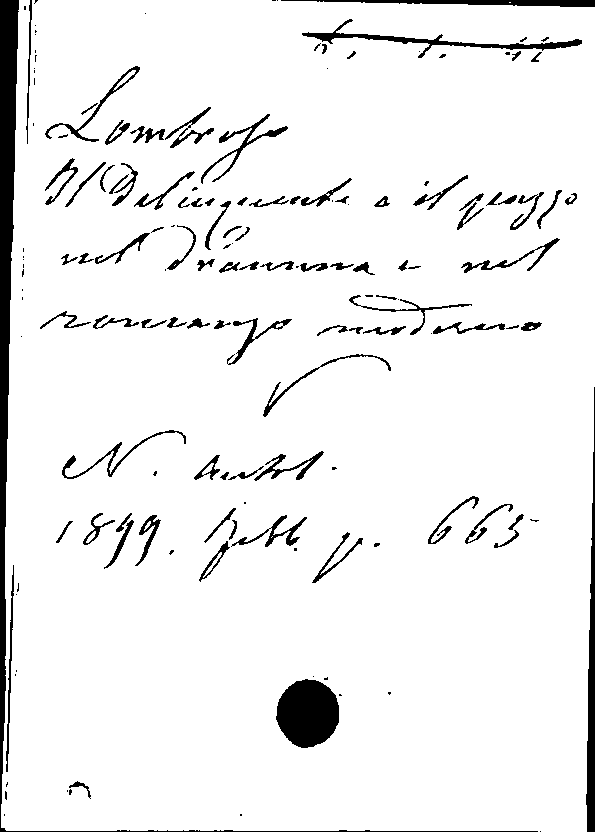 Lombroso
Il Delinquente e il pazzo
nel dramma e nel
romanzo moderno
N. Antol.
1899. Febb. p. 665